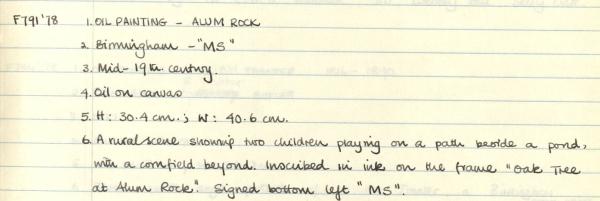 F791'78 1. OIL PAINTING - ALUM ROCK
2. Birmingham - "MS"
3. Mid-19th. century.
4. Oil on canvas
5. H: 30.4 cm.; W: 40.6 cm.
6. A rural scene showing two children playing on a path beside a pond,
with a cornfield beyond. Inscribed in ink on the frame "Oak Tree
at Alum Rock". Signed bottom left "MS".